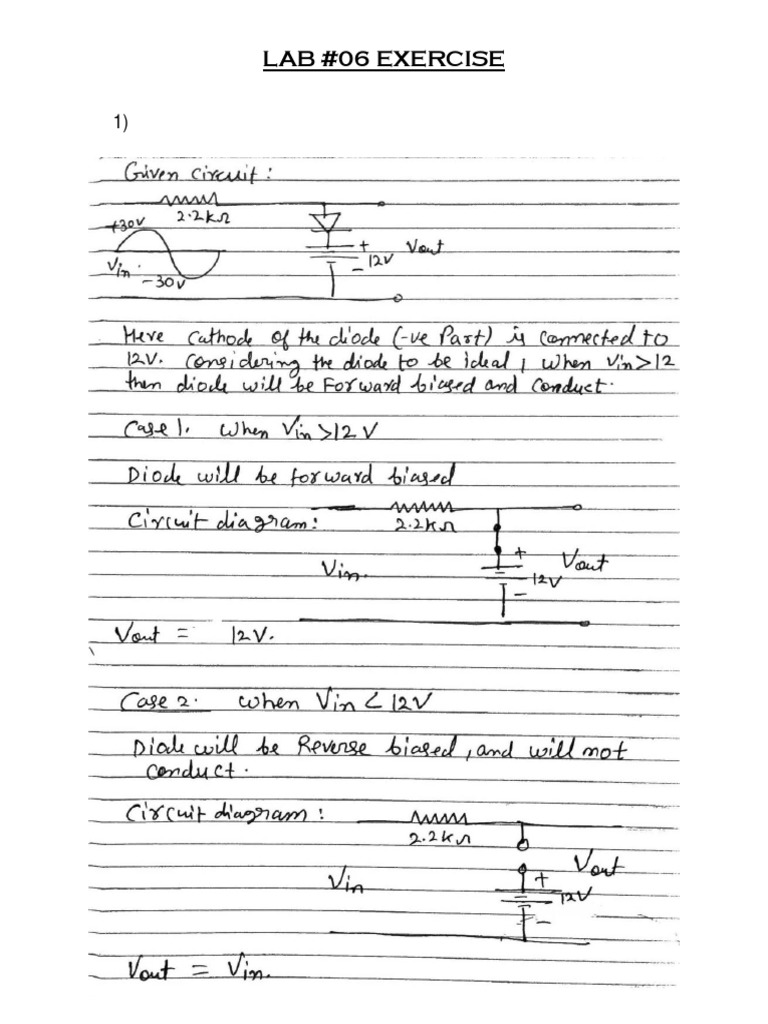 LAB #06 EXERCISE
1)
Given circuit:
2.2kΩ
+30V
Vin
-30V
+
12V
-
Vout
Here cathode of the diode (-ve Part) is connected to
12V. Considering the diode to be ideal, when Vin>12
then diode will be Forward biased and conduct.
Case 1. When Vin>12V
Diode will be forward biased
Circuit diagram:
2.2kΩ
Vin.
+
12V
-
Vout
Vout = 12V.
Case 2. when Vin<12V
Diode will be Reverse biased, and will not
conduct.
Circuit diagram:
2.2kΩ
Vin
+
12V
-
Vout
Vout = Vin.